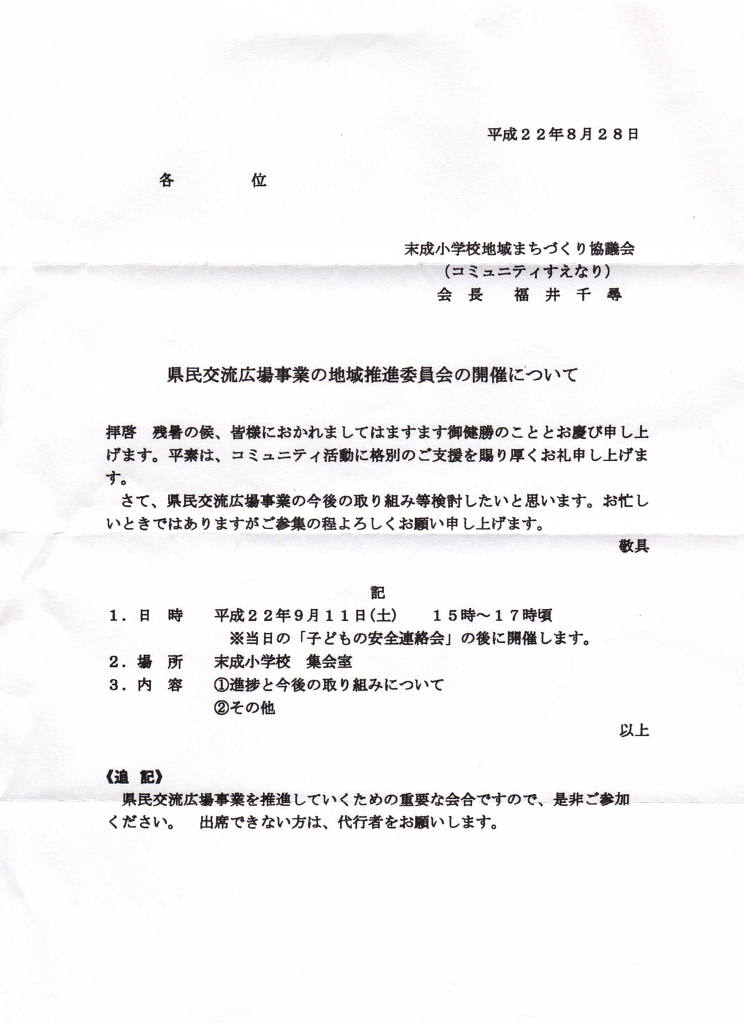 平成２２年８月２８日
各　　　　　位
末成小学校地域まちづくり協議会
（コミュニティすえなり）
会　長　　福　井　千　尋
県民交流広場事業の地域推進委員会の開催について
拝啓　残暑の候、皆様におかれましてはますます御健勝のこととお慶び申し上
げます。平素は、コミュニティ活動に格別のご支援を賜り厚くお礼申し上げま
す。
　さて、県民交流広場事業の今後の取り組み等検討したいと思います。お忙し
いときではありますがご参集の程よろしくお願い申し上げます。
敬具
記
１．日　時　　平成２２年９月１１日(土)　　１５時～１７時頃
※当日の「子どもの安全連絡会」の後に開催します。
２．場　所　　末成小学校　集会室
３．内　容　　①進捗と今後の取り組みについて
②その他
以上
《追　記》
　県民交流広場事業を推進していくための重要な会合ですので、是非ご参加
ください。　出席できない方は、代行者をお願いします。